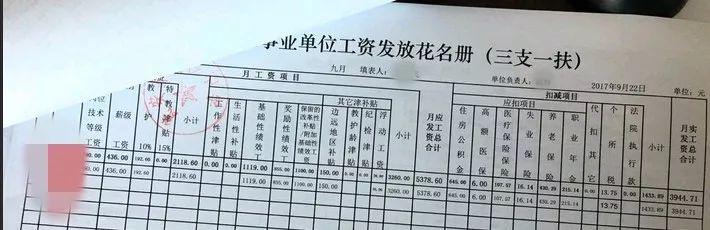 事业单位工资发放花名册（三支一扶）
九月 填表人： 单位负责人： 2017年9月22日 单位：元
月工资项目 扣减项目
其它津补贴 应扣项目
技术等级工资 薪级工资 教护10% 特教津贴15% 小计 工作性津贴 生活性补贴 基础性绩效工资 奖励性绩效工资 保留的改革性补贴/附加基础性绩效工资 边远地区补贴 教护龄津贴 纪检津贴 浮动工资 小计 月应发工资总合计 住房公积金 高额医保 医疗保险 失业保险 养老保险 职业年金 代扣其它 个所税 法院执行款 小计 月实发工资总合计
436.00 192.60 0.00 2118.60 0.00 0.00 1119.00 855.00 1100.00 150.00 0.00 0.00 3260.00 5378.60 645.00 6.00 107.57 16.14 430.29 215.14 0.00 13.75 0.00 1433.89 3944.71
436.00 192.60 2118.60 1119.00 855.00 1100.00 150.00 3260.00 5378.60 645.00 6.00 107.57 16.14 430.29 215.14 13.75 1433.89 3944.71